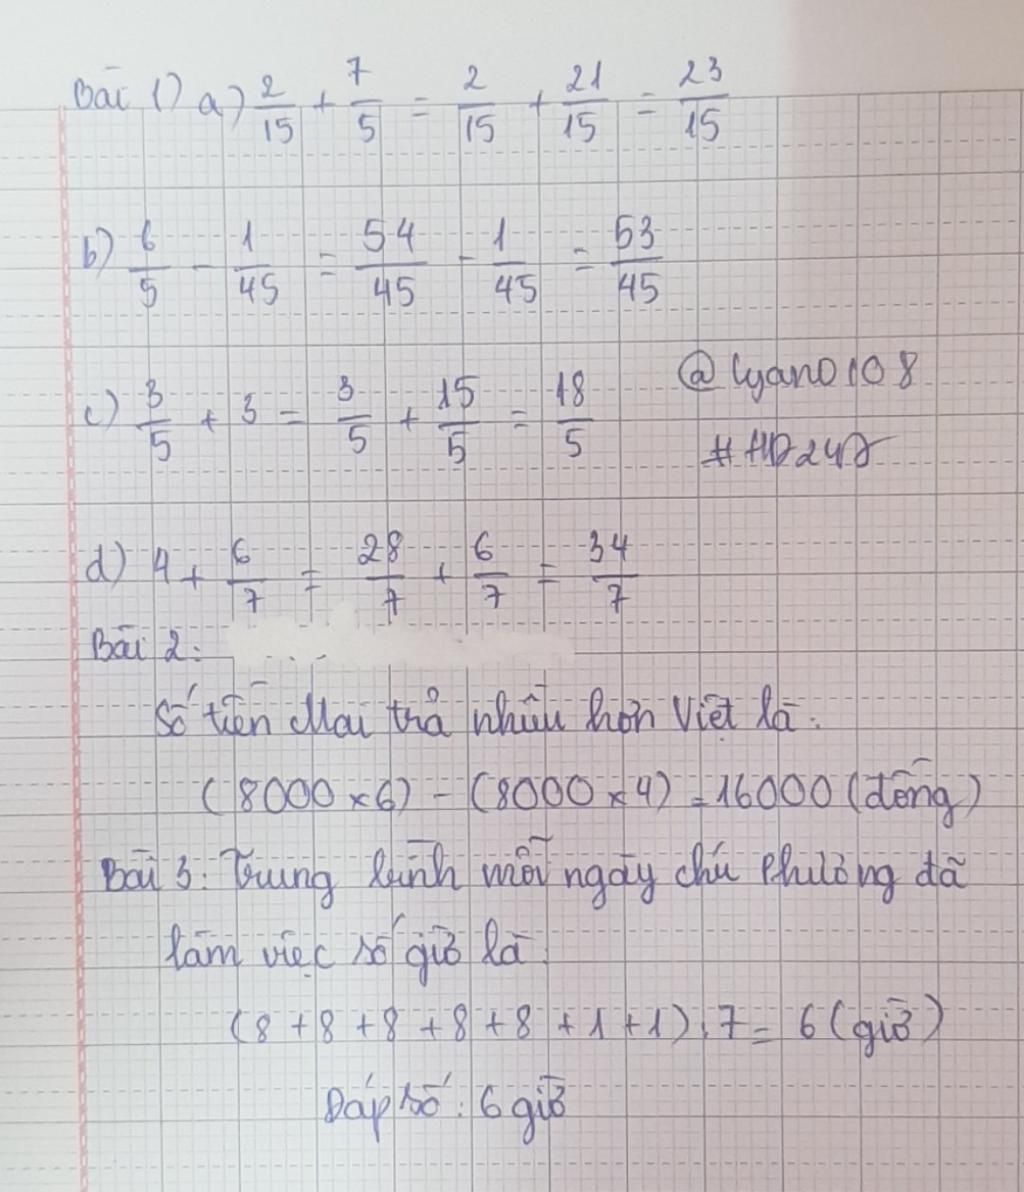 Bài 1) a) 2/15 + 7/5 = 2/15 + 21/15 = 23/15
b) 6/5 - 1/45 = 54/45 - 1/45 = 53/45
c) 3/5 + 3 = 3/5 + 15/5 = 18/5
@lyano108
#HD247
d) 4 + 6/7 = 28/7 + 6/7 = 34/7
Bài 2:
Số tiền Mai trả nhiều hơn Việt là:
(8000 × 6) - (8000 × 4) = 16000 (đồng)
Bài 3: Trung bình mỗi ngày chú Phương đã
làm việc số giờ là:
(8 + 8 + 8 + 8 + 8 + 1 + 1) : 7 = 6 (giờ)
Đáp số: 6 giờ